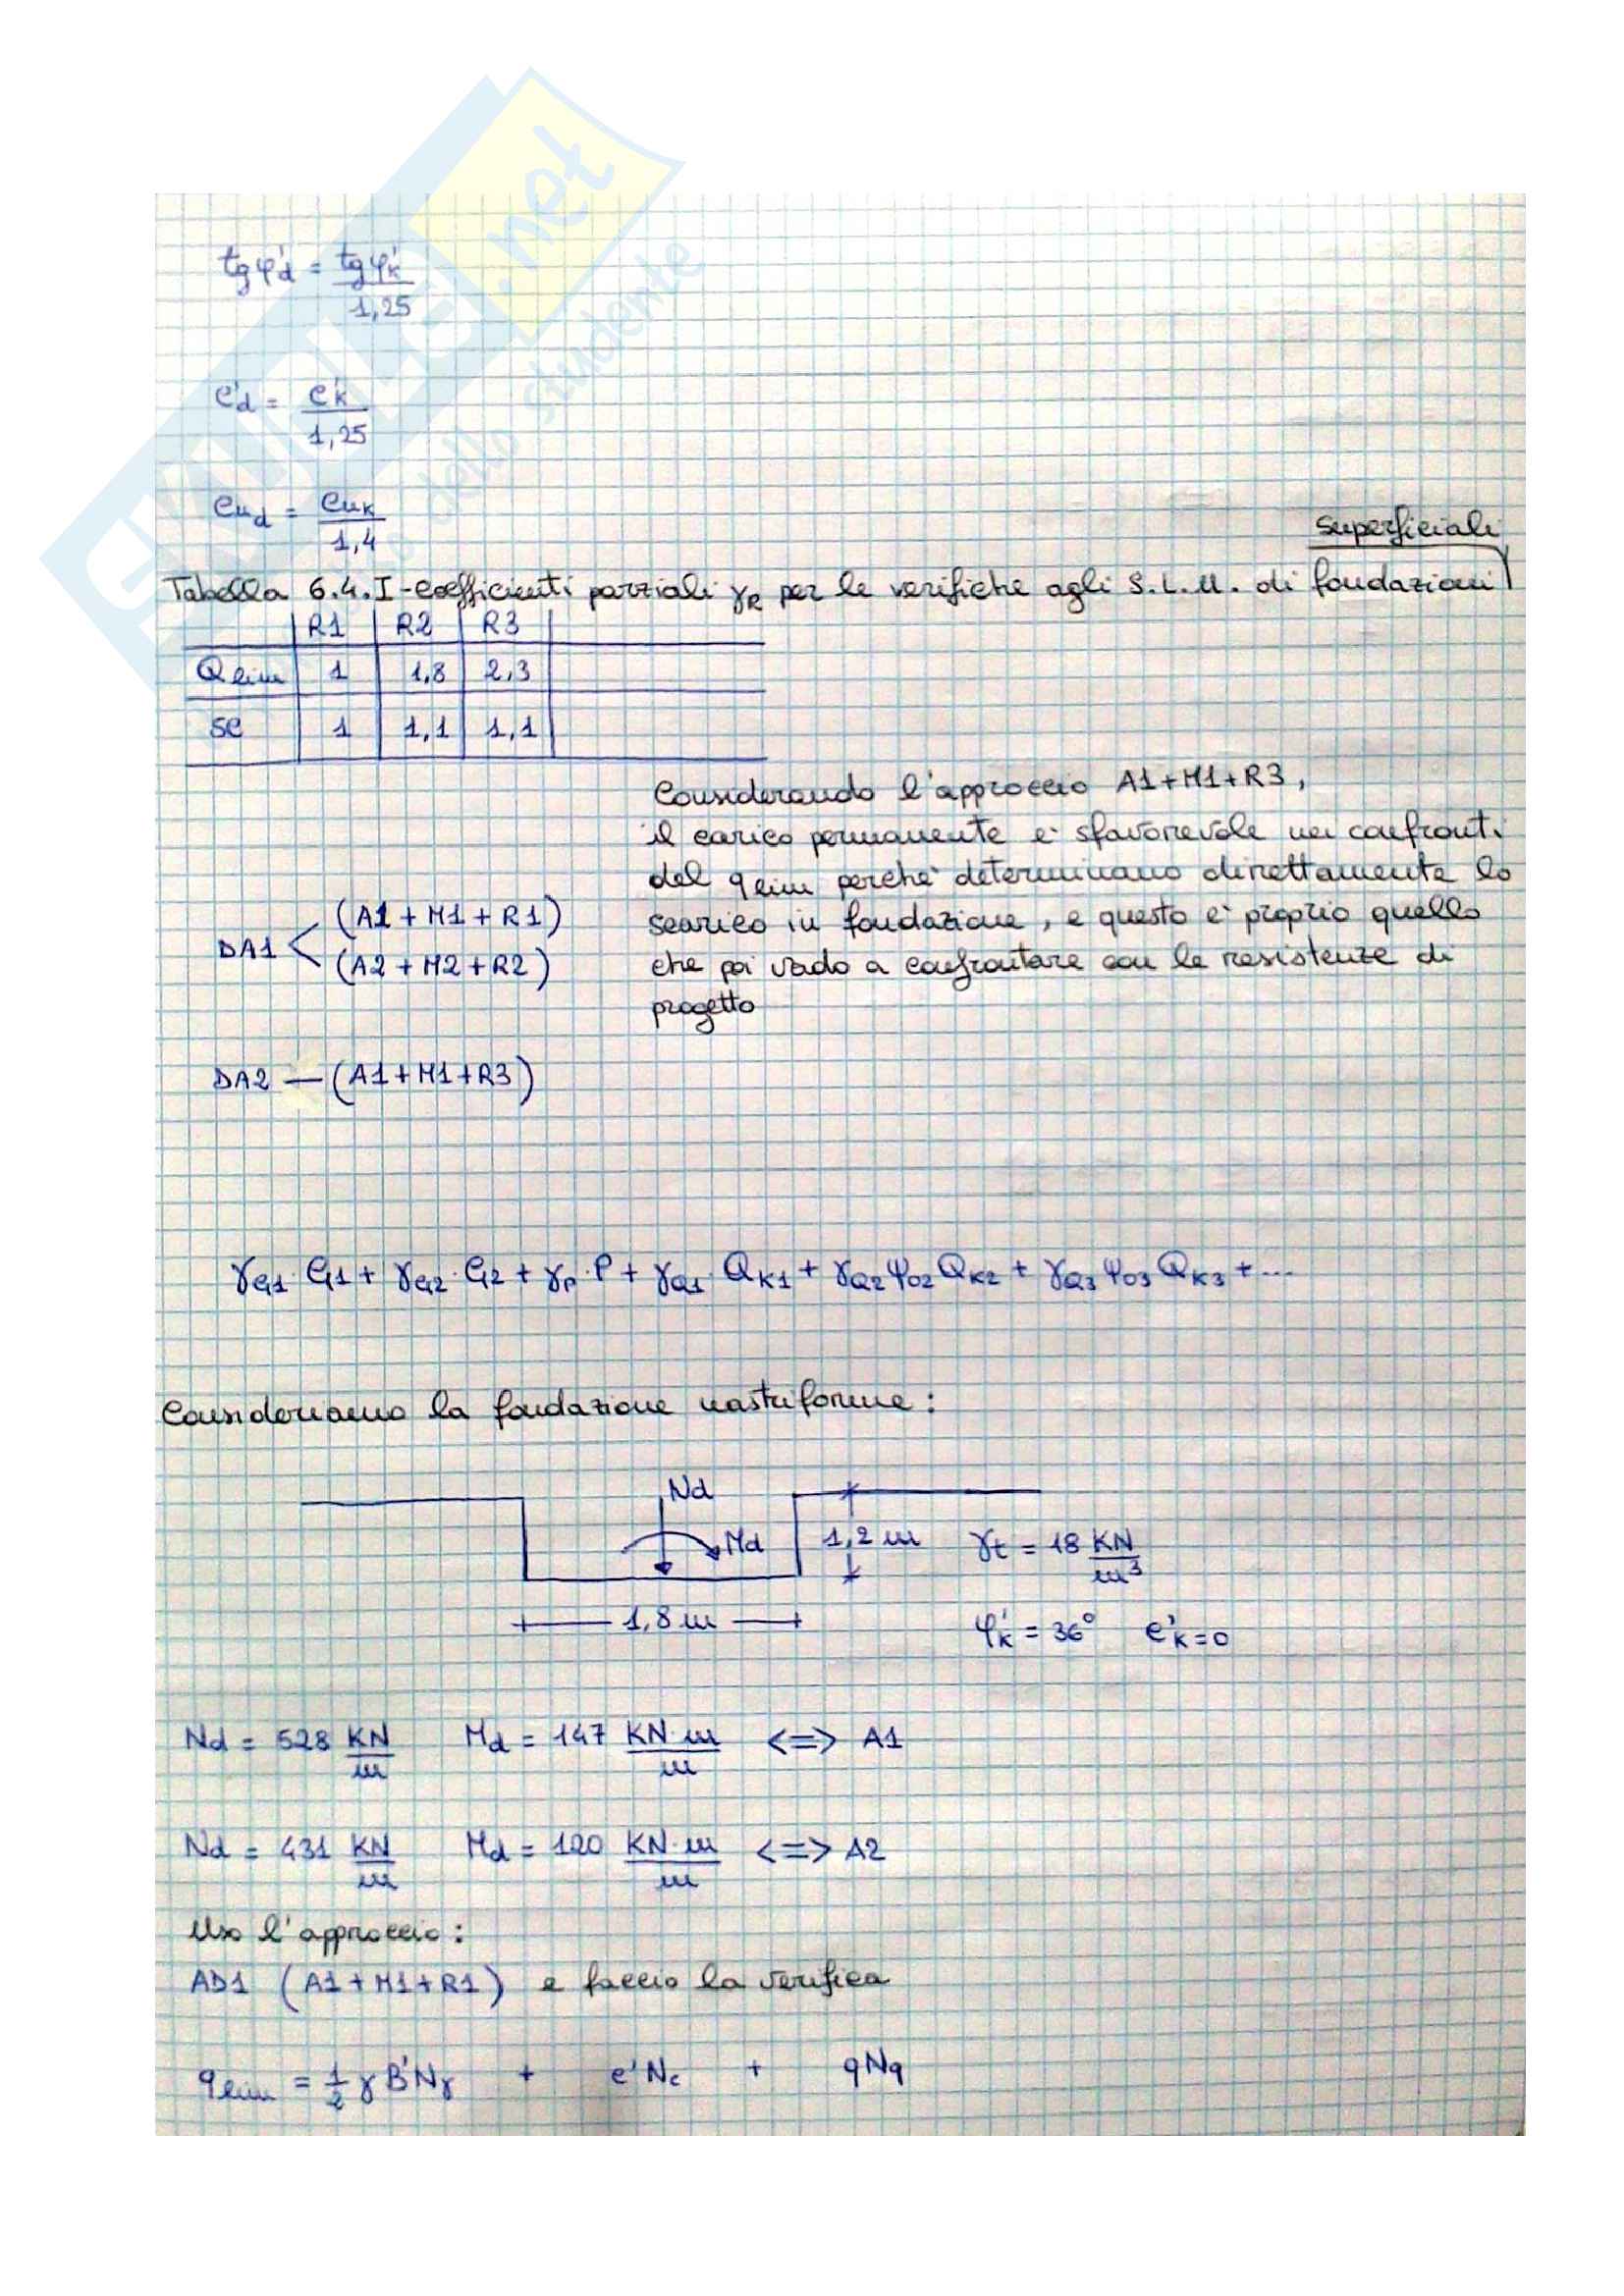 tgφ'd = tgφ'k / 1,25
c'd = c'k / 1,25
cud = cuk / 1,4
superficiali
Tabella 6.4.I - coefficienti parziali γR per le verifiche agli S.L.U. di fondazioni
R1 R2 R3
Qlim 1 1,8 2,3
SC 1 1,1 1,1
Considerando l'approccio A1+M1+R3,
il carico permanente è sfavorevole nei confronti
del qlim perché determinano direttamente lo
scarico in fondazione, e questo è proprio quello
che poi vado a confrontare con le resistenze di
progetto
DA1 < (A1 + M1 + R1)
(A2 + M2 + R2)
DA2 — (A1+M1+R3)
γG1·G1 + γG2·G2 + γP·P + γQ1·QK1 + γQ2 ψ02 QK2 + γQ3 ψ03 QK3 + ...
Consideriamo la fondazione nastriforme:
Nd
Md
1,2 m
γt = 18 KN/m³
1,8 m
φ'k = 36° c'k = 0
Nd = 528 KN/m Md = 147 KN·m/m <=> A1
Nd = 431 KN/m Md = 120 KN·m/m <=> A2
Uso l'approccio:
AD1 (A1+M1+R1) e faccio la verifica
qlim = 1/2 γ B'Nγ + c'Nc + qNq
.net
dello studente